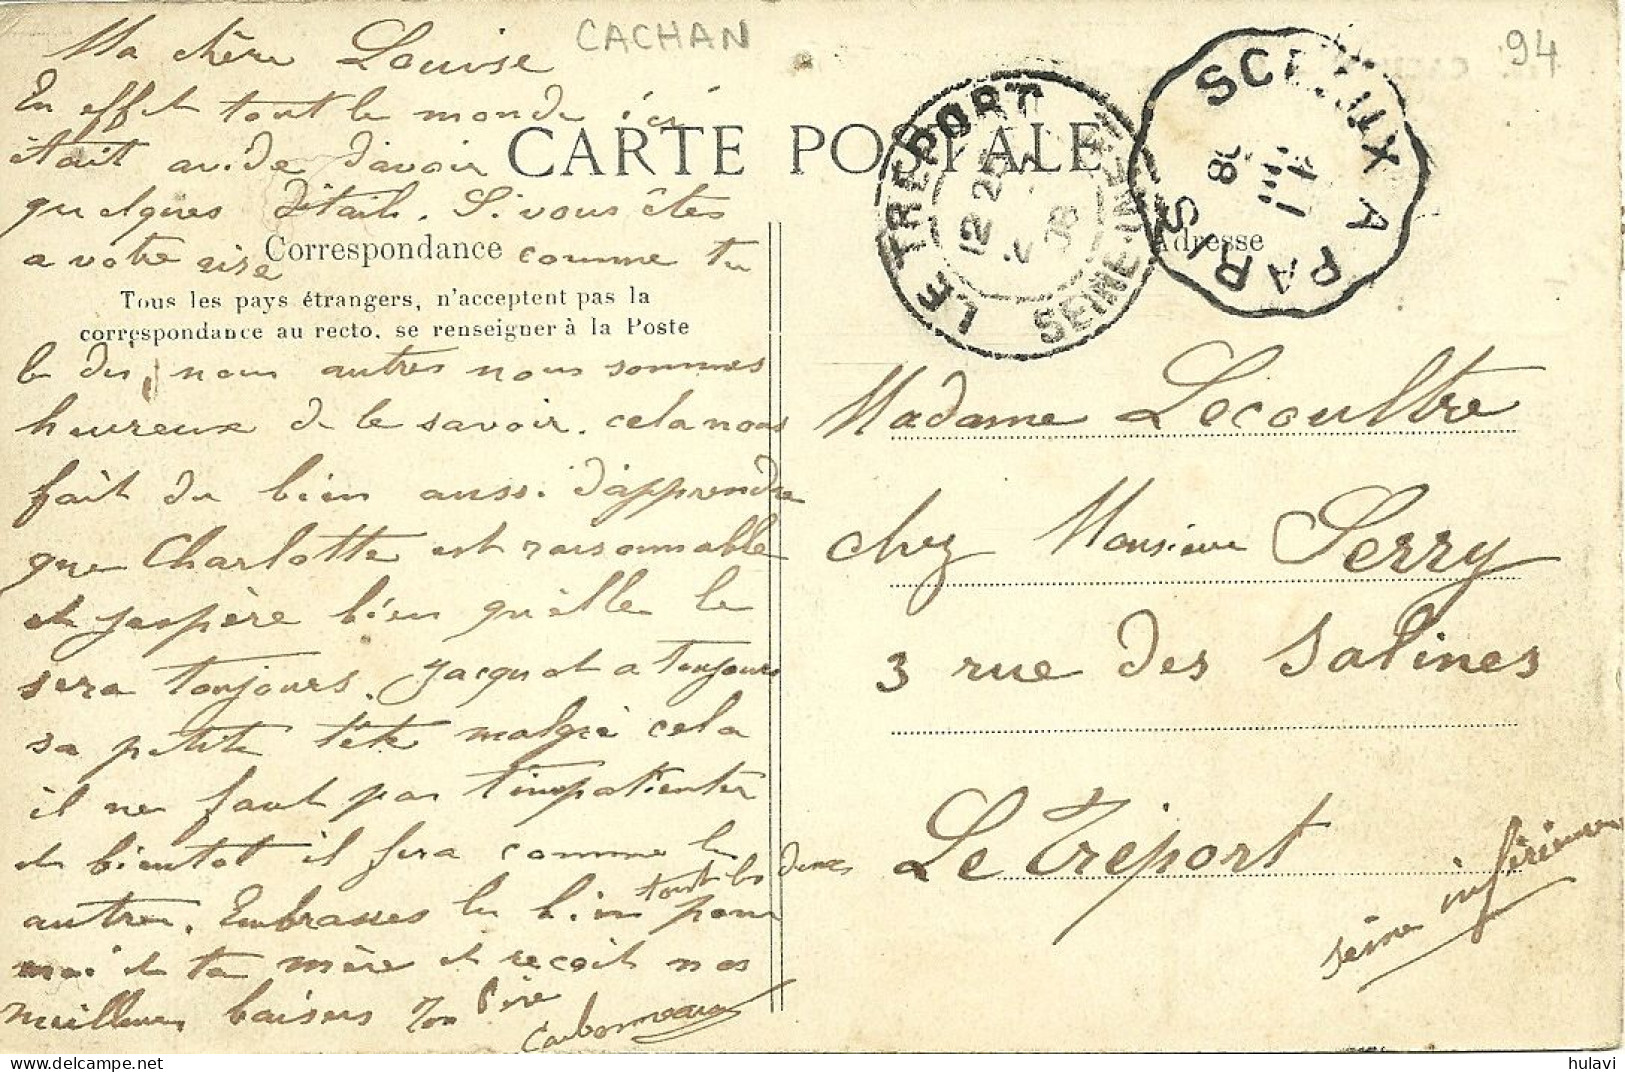 CACHAN
94
Ma chère Louise
En effet tout le monde ici
était avide d'avoir
CARTE POSTALE
quelques détails. Si vous êtes
a votre aise
Correspondance
comme tu
Tous les pays étrangers, n'acceptent pas la
correspondance au recto, se renseigner à la Poste
le dis, nous autres nous sommes
heureux de le savoir. cela nous
fait du bien aussi d'apprendre
que Charlotte est raisonnable
et j'espère bien qu'elle le
sera toujours. Jacquot a toujours
sa petite tête malgré cela
il ne faut pas t'impatienter
et bientot il sera comme les
autres. Embrasses les bien tout les deux pour
moi et ta mère et reçoit nos
meilleurs baisers Ton Père
Carbonneaux
LE TREPORT
SEINE-INF.
12 25
08
SCEAUX A PARIS
Adresse
Madame Lecoultre
chez Monsieur Serry
3 rue des Salines
Le Tréport
seine inférieure
hulavi